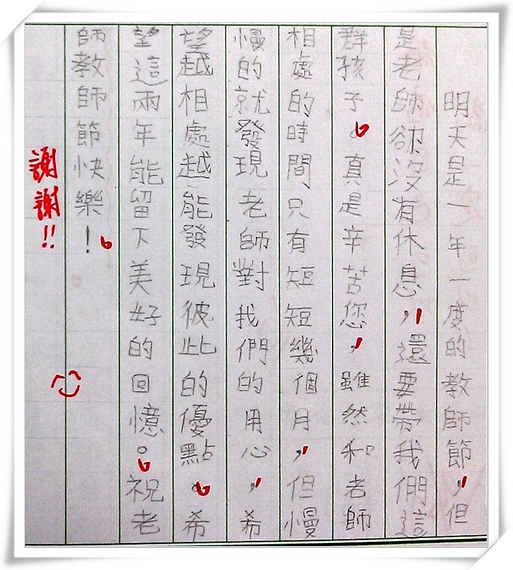 明天是一年一度的教師節，但
是老師卻沒有休息，還要帶我們這
群孩子。真是辛苦您，雖然和老師
相處的時間只有短短幾個月，但慢
慢的就發現老師對我們的用心，希
望越相處越能發現彼此的優點。希
望這兩年能留下美好的回憶。祝老
師教師節快樂！
謝謝!!